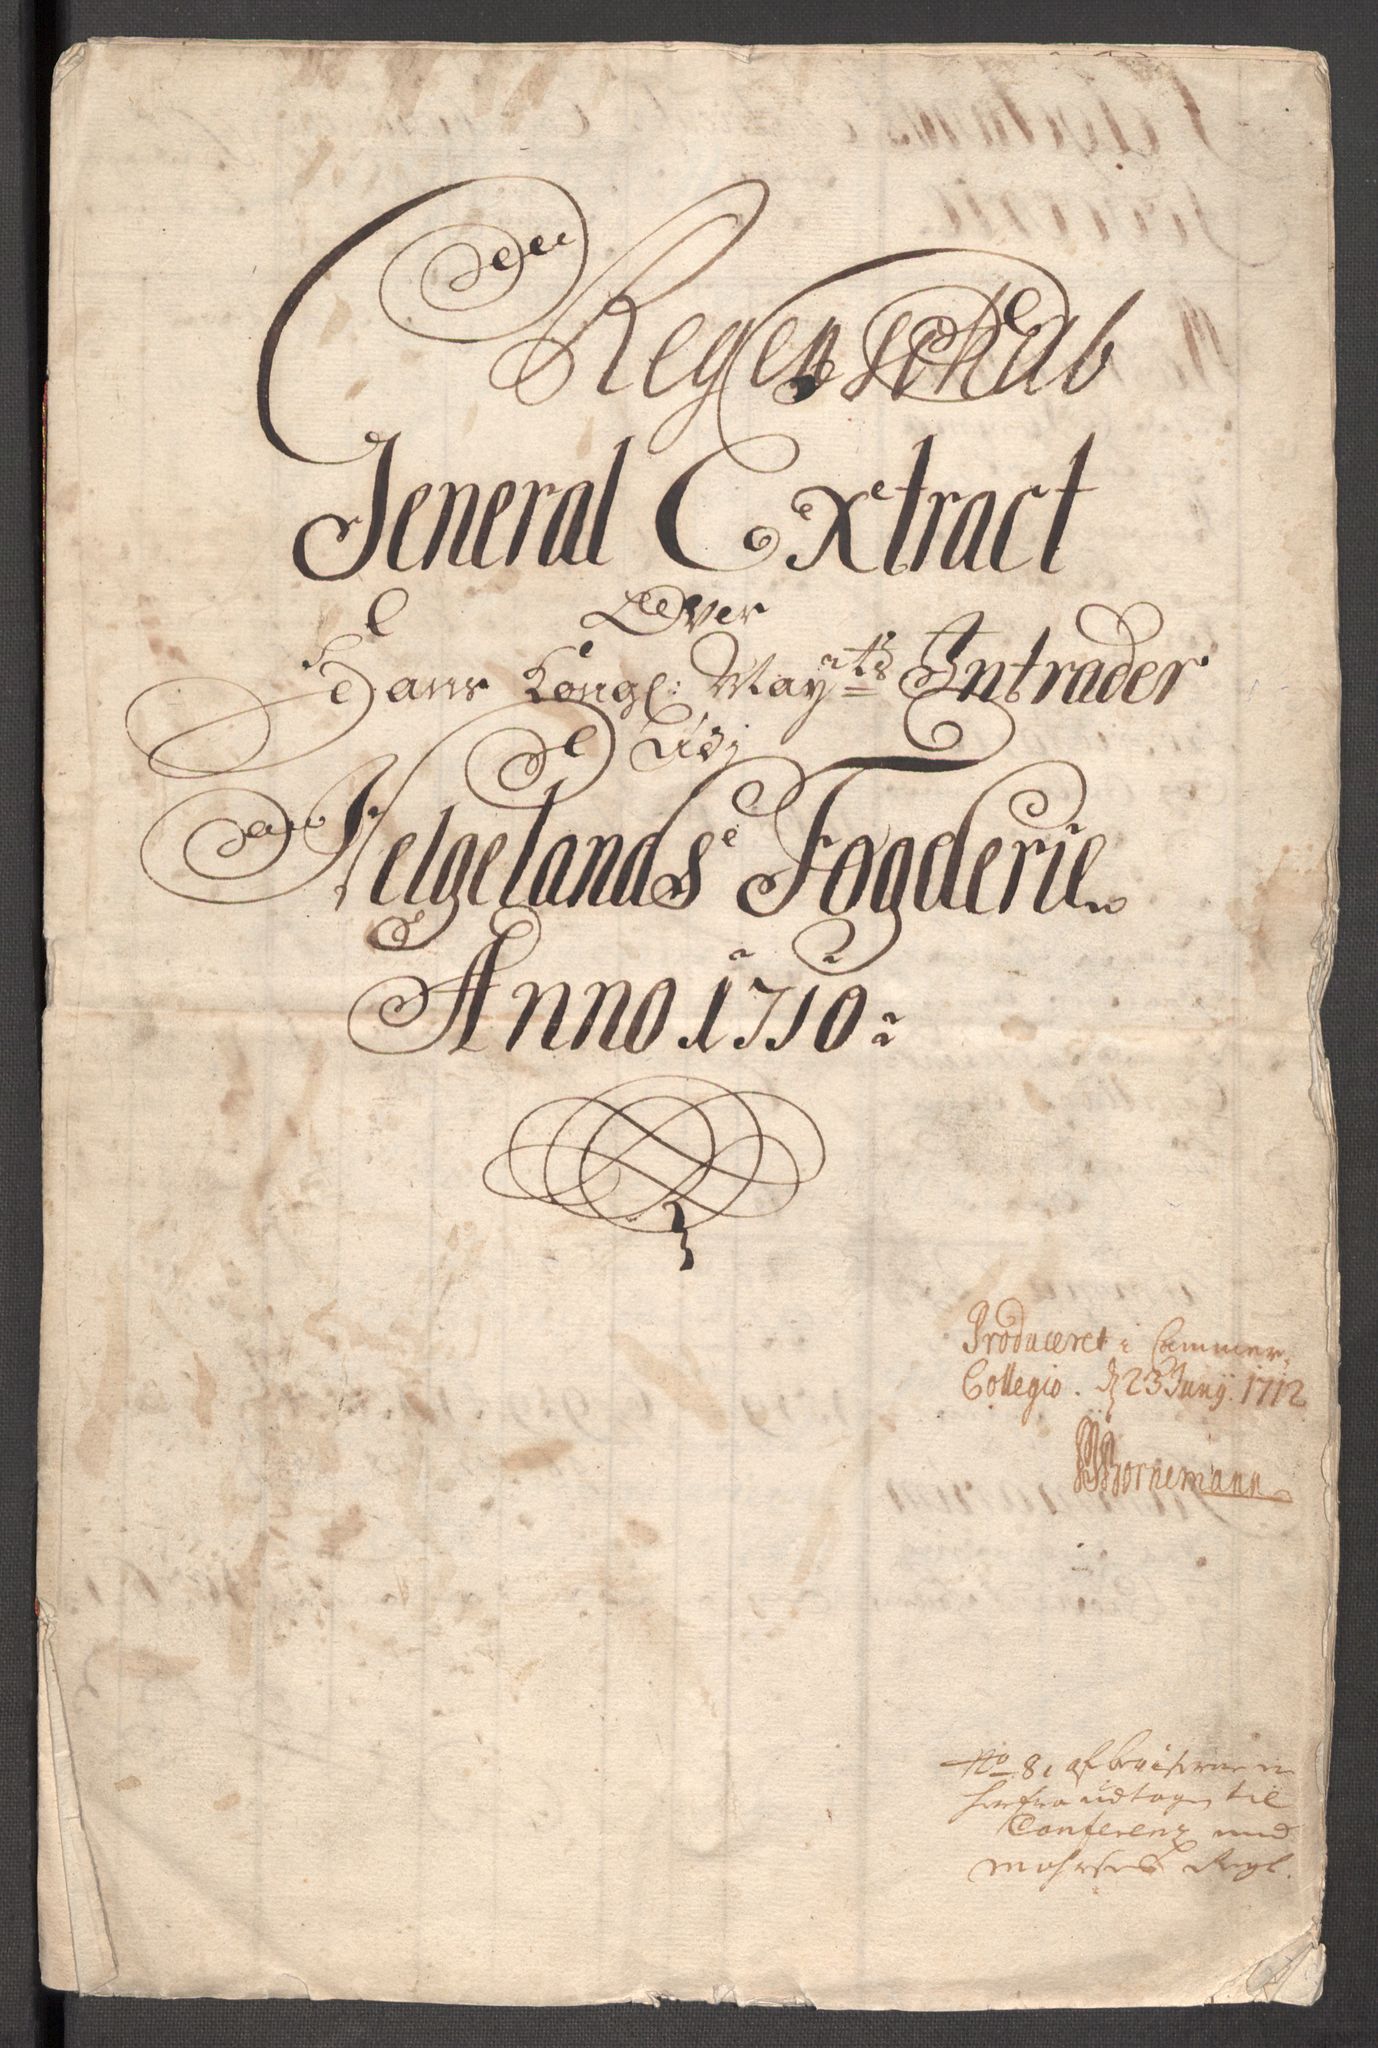 Regenschab
General Extract
Over
Hans Kongl: Mayts Intrader
Udj
Helgelands Fogderie
Anno 1710:
Produceret i Cammer
Collegio. d 23 Junij. 1712
Bornemann
No 81 af
herfra udtagen til
Conferenz med
Regl.